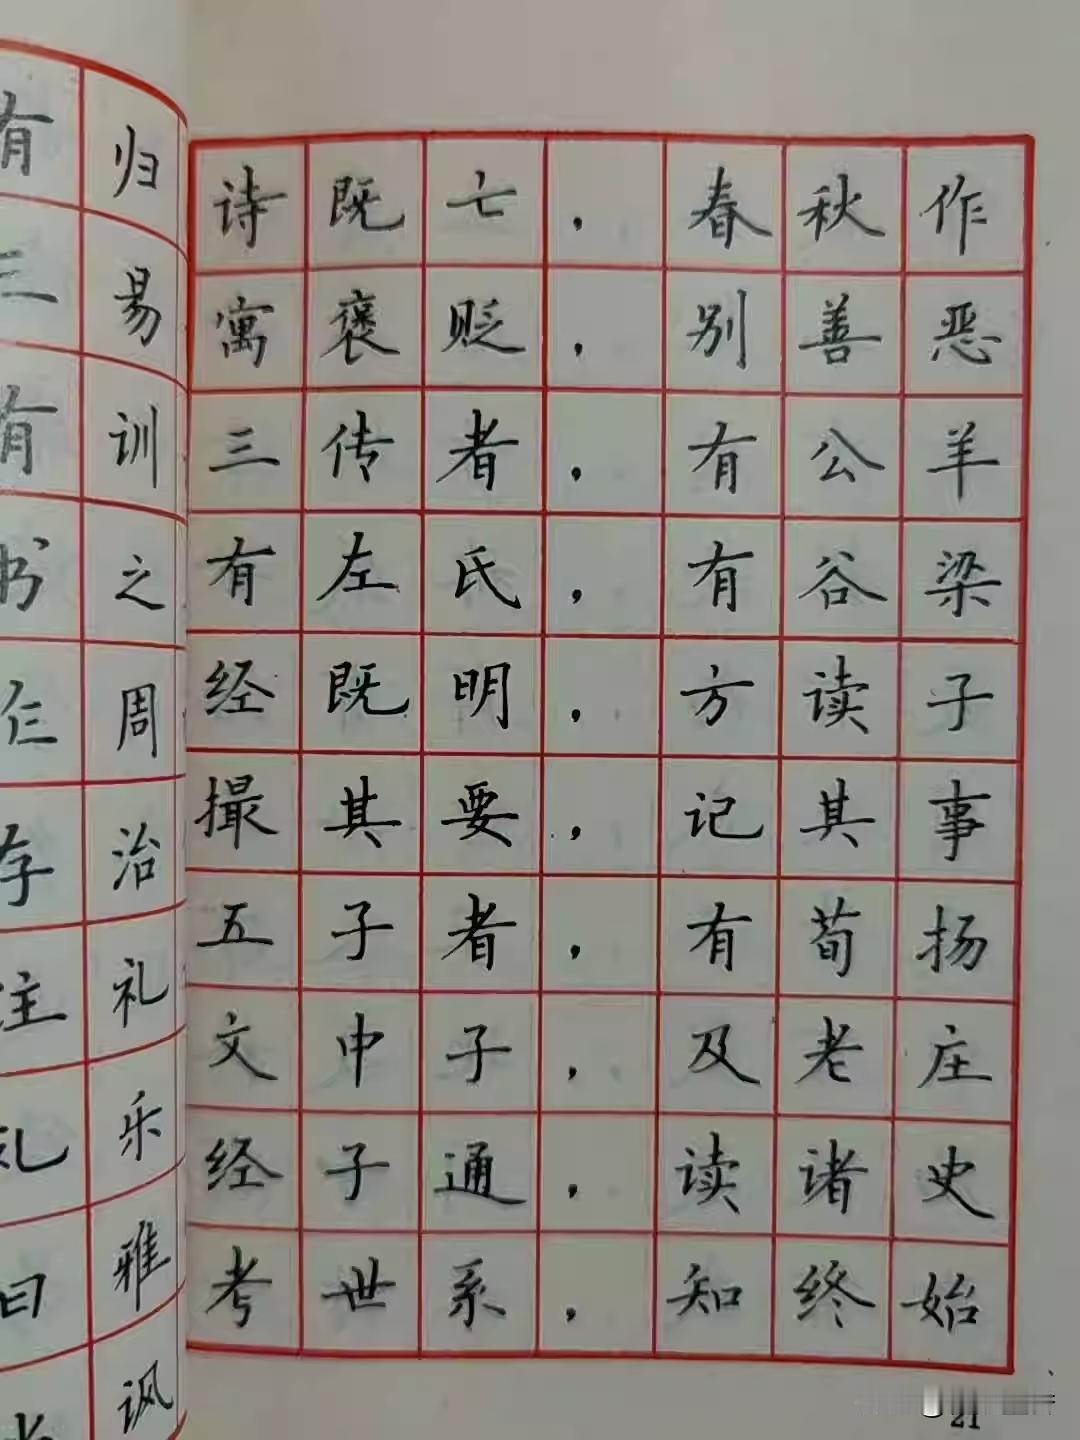 有归
三易
有训
书之
作周
存治
注礼
礼乐
曰雅
讽
诗既亡，春秋作
寓褒贬，别善恶
三传者，有公羊
有左氏，有谷梁
经既明，方读子
撮其要，记其事
五子者，有荀扬
文中子，及老庄
经子通，读诸史
考世系，知终始
21